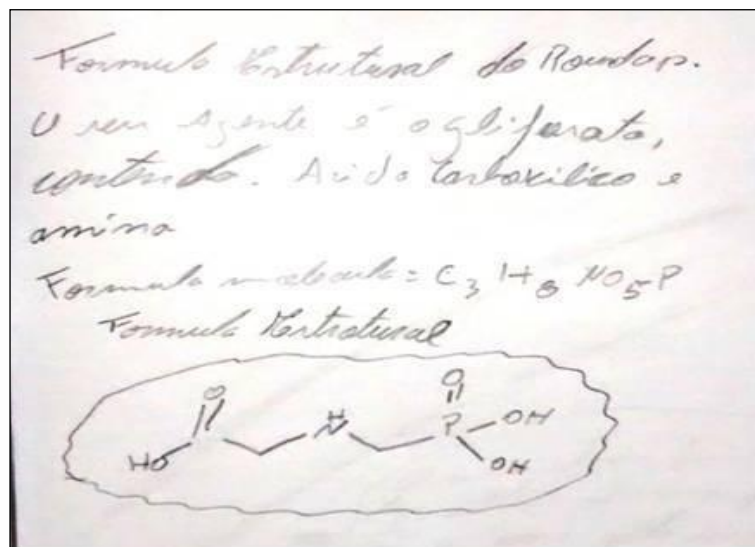 Formula Estrutural do Roundap.
O seu Agente é o glifosato,
contendo. Acido Carboxilico e
amina
Formula molecula = C3 H8 NO5P
Formula Estrutural
O O
H
HO N P OH
OH